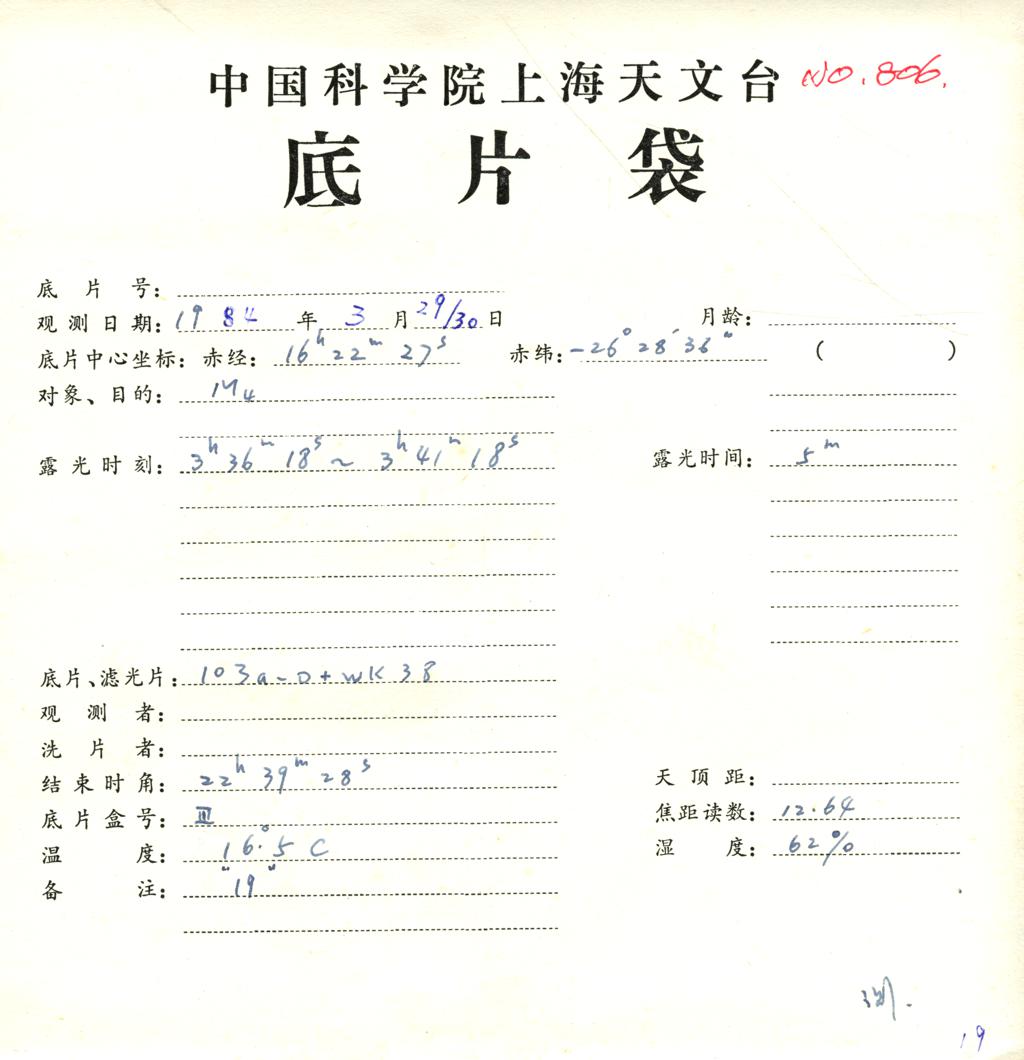 中国科学院上海天文台 NO.806.
底片袋
底片号：
观测日期：1984年3月29/30日 月龄：
底片中心坐标：赤经：16h22m27s 赤纬：-26°28′36″ ( )
对象、目的：M4
露光时刻：3h36m18s～3h41m18s 露光时间：5m
底片、滤光片：103a-D+WK38
观测者：
洗片者：
结束时角：22h39m28s 天顶距：
底片盒号：Ⅲ 焦距读数：12.64
温度：16.°5C 湿度：62%
备注："19"
19